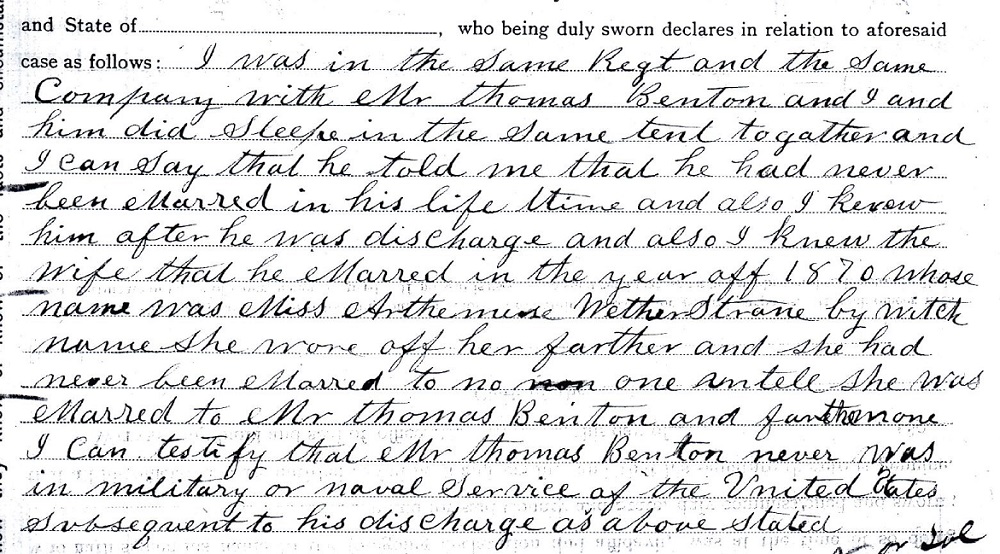 and State of............................................., who being duly sworn declares in relation to aforesaid
case as follows: I was in the same Regt and the same
Company with Mr thomas Benton and I and
him did Sleepe in the same tent togather and
I can say that he told me that he had never
been Marred in his life ttime and also I kenow
him after he was discharge and also I knew the
wife that he Marred in the year off 1870 whose
name was Miss Arthemuse Wether Strane by witch
name she wore off her farther and she had
never been Marred to no one untell she was
Marred to Mr thomas Benton and farthermone
I Can testify that Mr thomas Benton never was
in military or naval Service of the United States
Subsequent to his discharge as above stated